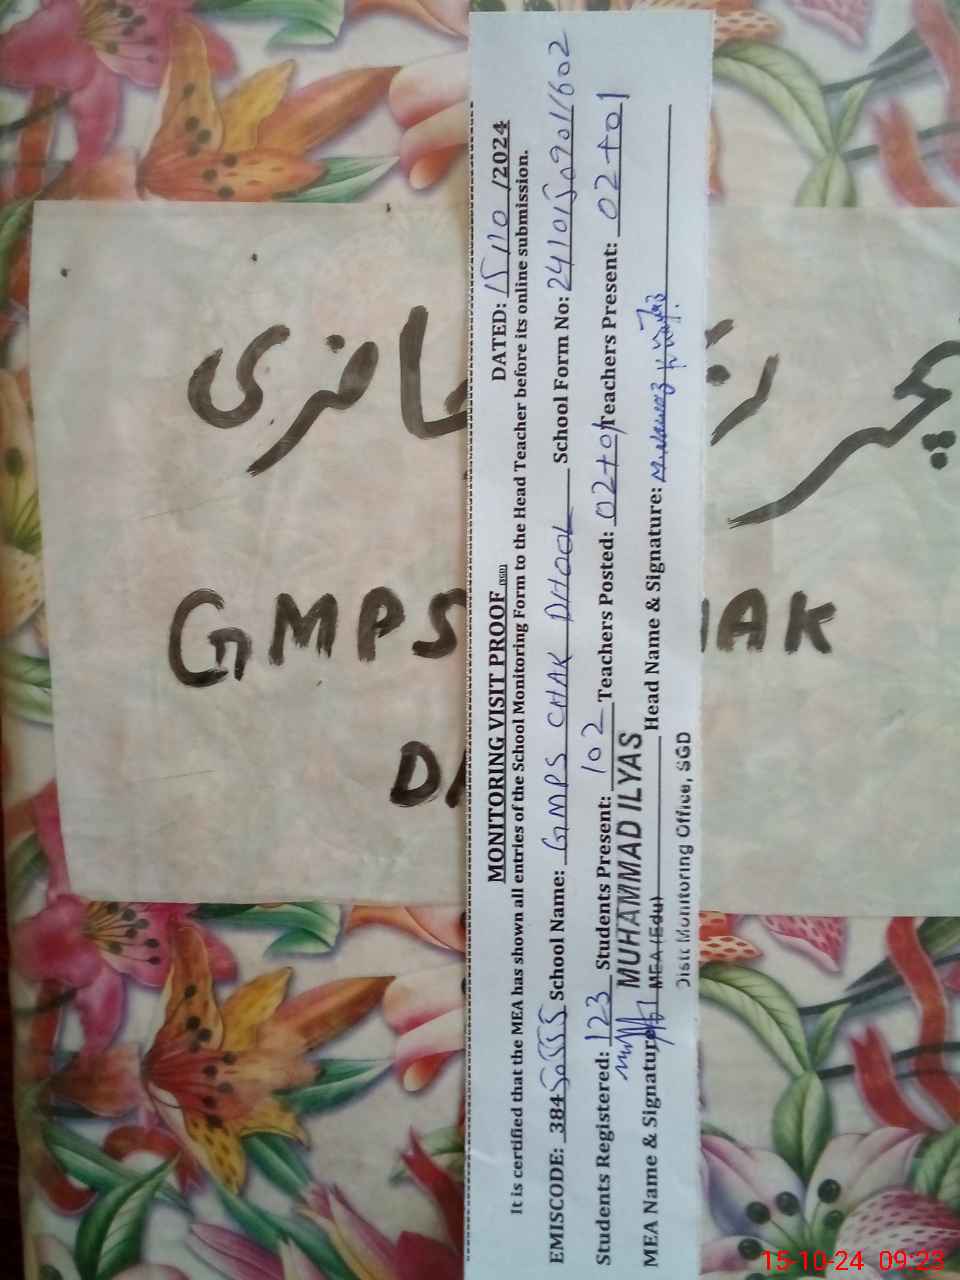 MONITORING VISIT PROOF (SGD) DATED: 15/10/2024
It is certified that the MEA has shown all entries of the School Monitoring Form to the Head Teacher before its online submission.
EMISCODE: 384 School Name: GMPS CHAK DHOOL School Form No: 24101509011602
Students Registered: 123 Students Present: 102 Teachers Posted: 02+01 Teachers Present: 02+01
MUHAMMAD ILYAS
MEA Name & Signature MEA (Edu) Head Name & Signature: M. Nawaz
Distt Monitoring Office, SGD
GMPS AK
15-10-24 09:23